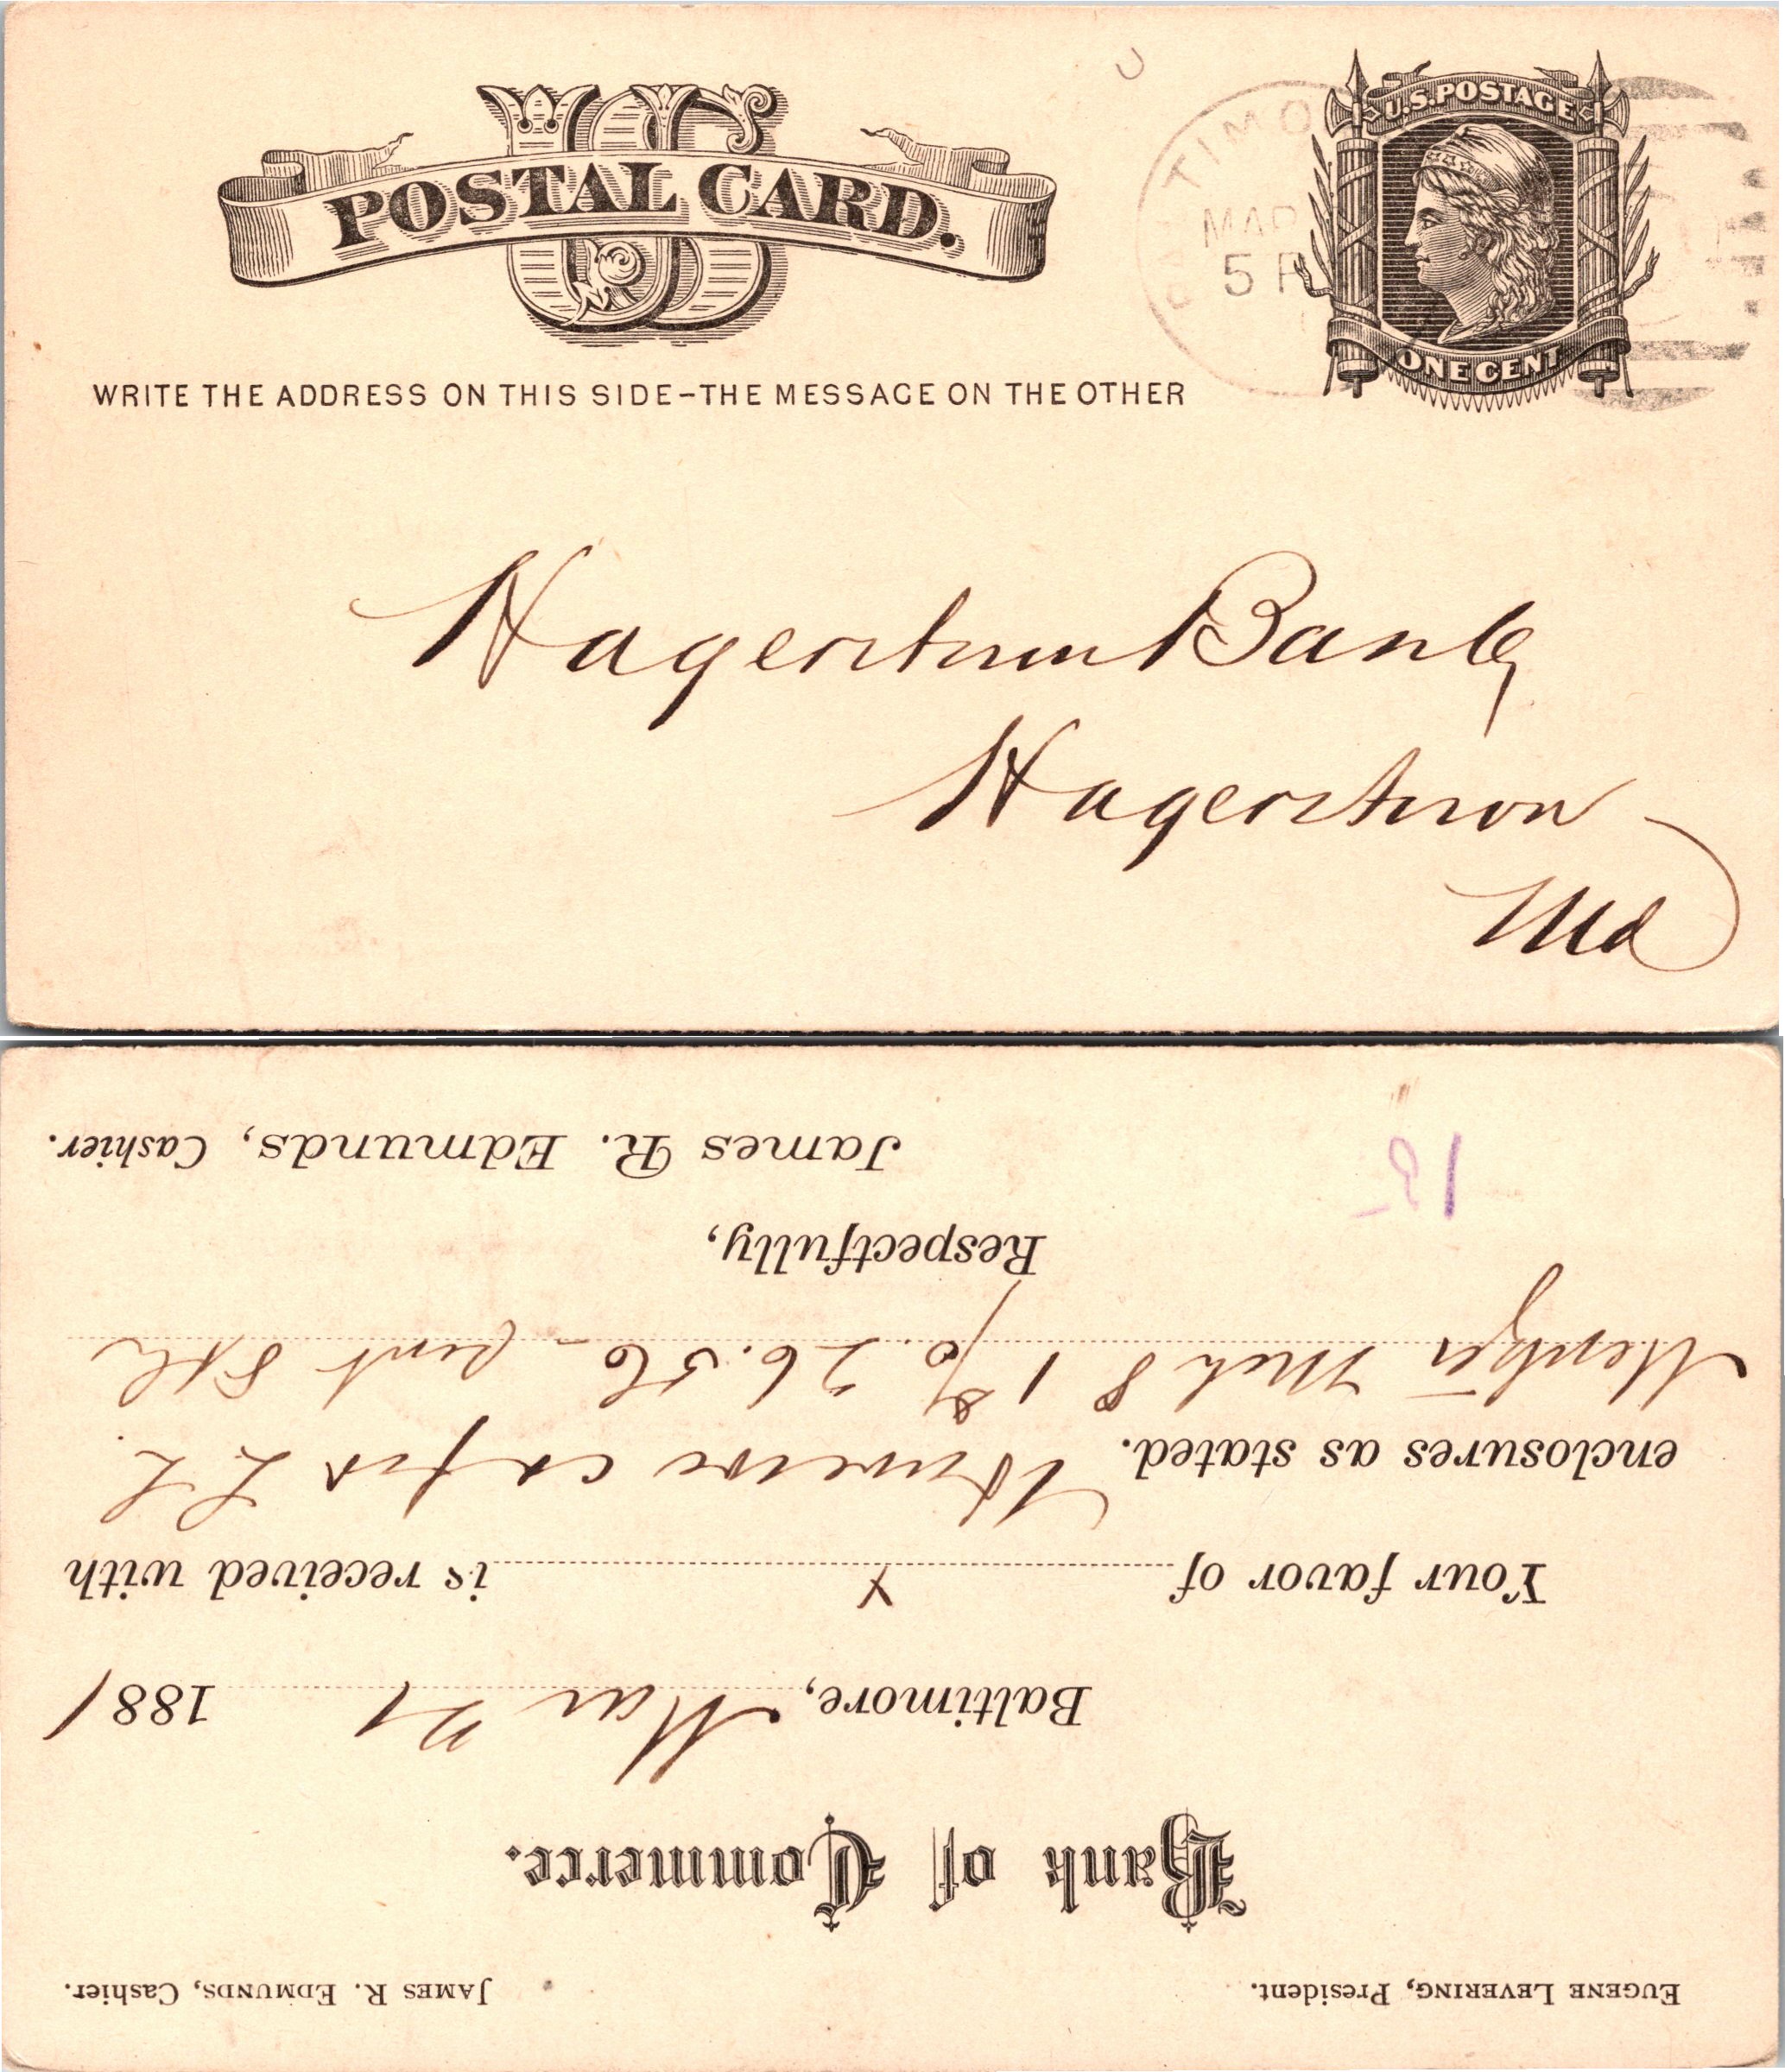 US
POSTAL CARD.
U.S. POSTAGE
ONE CENT
TIMO
MAR
5 P
WRITE THE ADDRESS ON THIS SIDE–THE MESSAGE ON THE OTHER
Hagerstown Bank
Hagerstown
Md
EUGENE LEVERING, President.
JAMES R. EDMUNDS, Cashier.
Bank of Commerce.
Baltimore, Mar 21 1881
Your favor of x is received with
enclosures as stated.
26.56
Respectfully,
James R. Edmunds, Cashier.